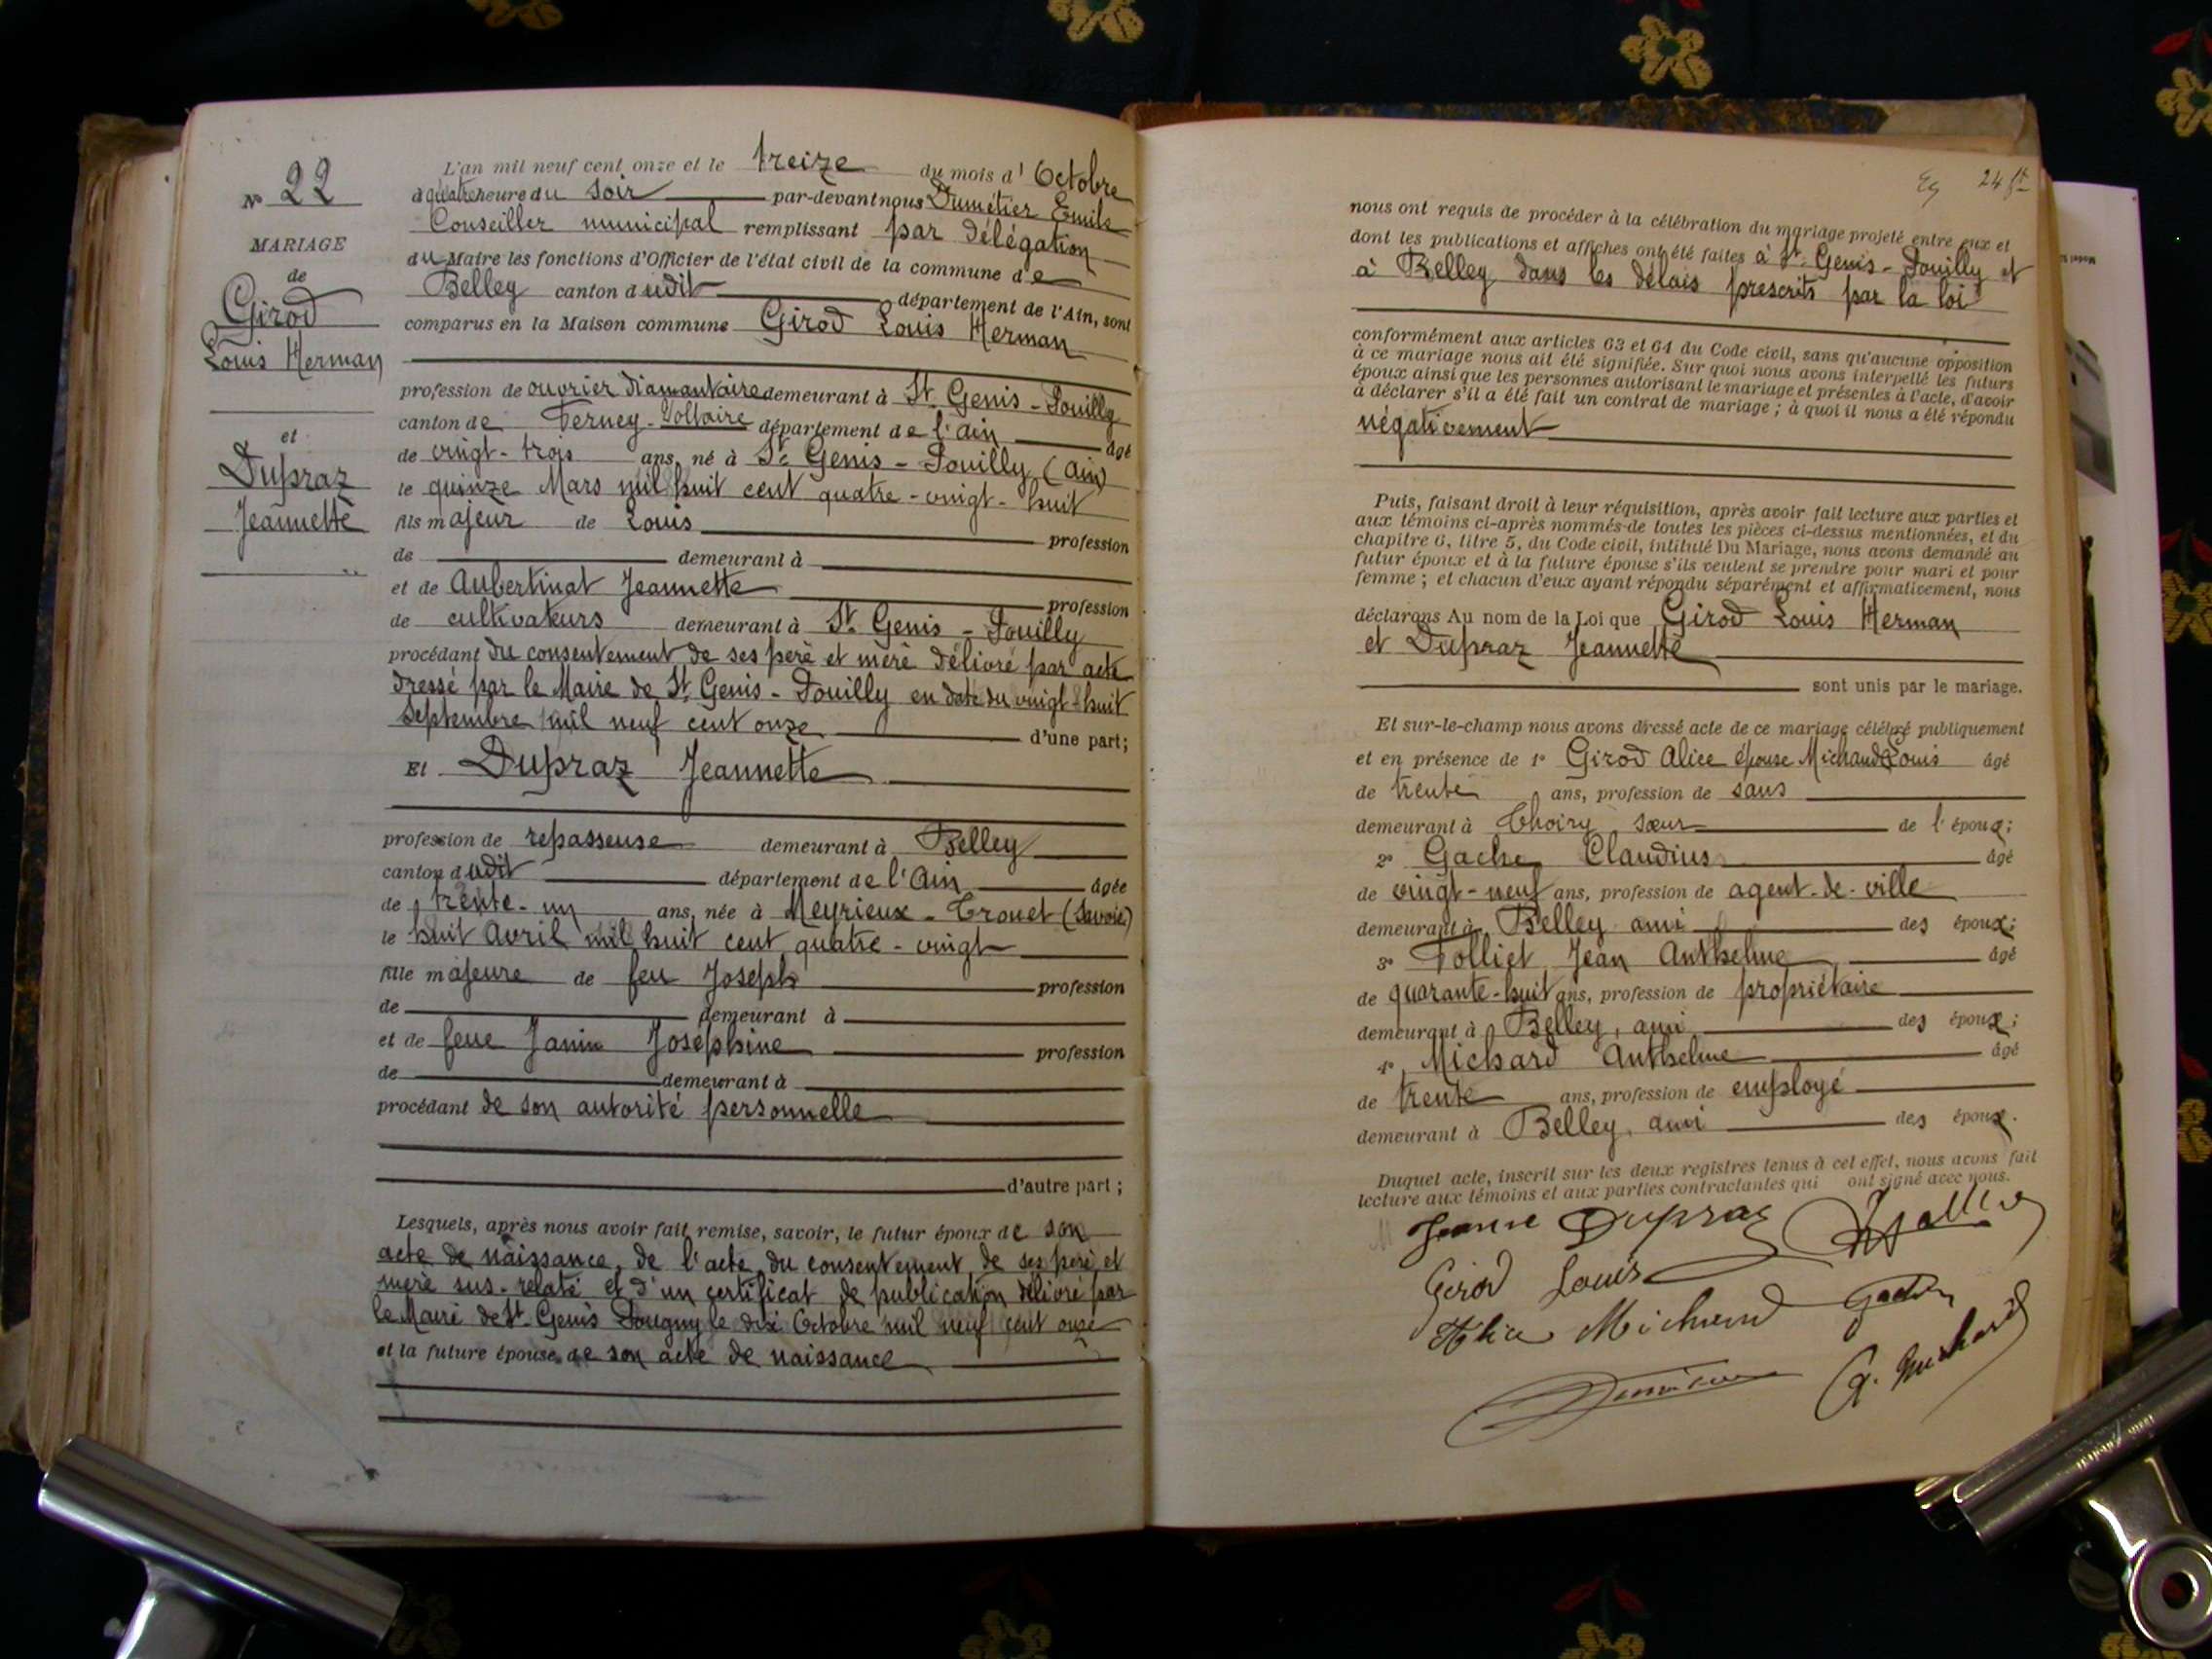 N° 22
MARIAGE
de
Girod
Louis Herman
et
Dupraz
Jeannette
L'an mil neuf cent onze et le treize du mois d'Octobre
à quatre heure du soir par-devant nous Dumétier Emile
Conseiller municipal remplissant par délégation
du Maire les fonctions d'Officier de l'état civil de la commune de
Belley canton dudit département de l'Ain, sont
comparus en la Maison commune Girod Louis Herman
profession de ouvrier diamantaire demeurant à St Genis-Pouilly
canton de Ferney-Voltaire département de l'ain âgé
de vingt-trois ans, né à St Genis-Pouilly (Ain)
le quinze Mars mil huit cent quatre-vingt-huit
fils majeur de Louis profession
de demeurant à
et de Aubertinat Jeannette profession
de cultivateurs demeurant à St Genis-Pouilly
procédant du consentement de ses père et mère délivré par acte
dressé par le Maire de St Genis-Pouilly en date du vingt-huit
Septembre mil neuf cent onze d'une part;
Et Dupraz Jeannette
profession de repasseuse demeurant à Belley
canton dudit département de l'Ain âgée
de trente-un ans, née à Meyrieux-Trouet (Savoie)
le huit Avril mil huit cent quatre-vingt
fille majeure de feu Joseph profession
de demeurant à
et de feue Janin Joséphine profession
de demeurant à
procédant de son autorité personnelle
d'autre part;
Lesquels, après nous avoir fait remise, savoir, le futur époux de son
acte de naissance, de l'acte du consentement de ses père et
mère sus-relaté et d'un certificat de publication délivré par
le Maire de St Genis Pougny le dix Octobre mil neuf cent onze
et la future épouse de son acte de naissance
24
nous ont requis de procéder à la célébration du mariage projeté entre eux et
dont les publications et affiches ont été faites à St Genis-Pouilly et
à Belley dans les délais prescrits par la loi
conformément aux articles 63 et 64 du Code civil, sans qu'aucune opposition
à ce mariage nous ait été signifiée. Sur quoi nous avons interpellé les futurs
époux ainsi que les personnes autorisant le mariage et présentes à l'acte, d'avoir
à déclarer s'il a été fait un contrat de mariage; à quoi il nous a été répondu
négativement
Puis, faisant droit à leur réquisition, après avoir fait lecture aux parties et
aux témoins ci-après nommés de toutes les pièces ci-dessus mentionnées, et du
chapitre 6, titre 5, du Code civil, intitulé Du Mariage, nous avons demandé au
futur époux et à la future épouse s'ils veulent se prendre pour mari et pour
femme; et chacun d'eux ayant répondu séparément et affirmativement, nous
déclarons Au nom de la Loi que Girod Louis Herman
et Dupraz Jeannette
sont unis par le mariage.
Et sur-le-champ nous avons dressé acte de ce mariage célébré publiquement
et en présence de 1° Girod Alice épouse Michaud Louis âgé
de trente ans, profession de sans
demeurant à Thoiry sœur de l'époux;
2° Gache Claudius âgé
de vingt-neuf ans, profession de agent-de-ville
demeurant à Belley ami des époux;
3° Folliet Jean Anthelme âgé
de quarante-huit ans, profession de propriétaire
demeurant à Belley, ami des époux;
4° Michard Anthelme âgé
de trente ans, profession de employé
demeurant à Belley, ami des époux.
Duquel acte, inscrit sur les deux registres tenus à cet effet, nous avons fait
lecture aux témoins et aux parties contractantes qui ont signé avec nous.
Jeanne Dupraz
Girod Louis
Alice Michaud